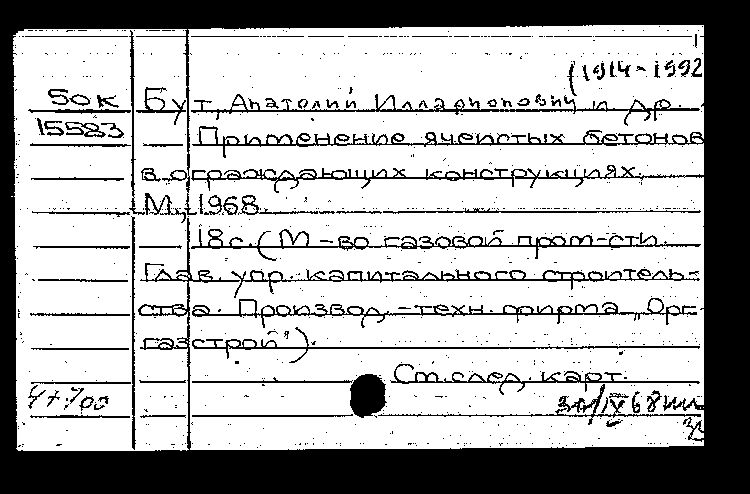 (1914-1992
50к Бут, Анатолий Илларионович и др.
15583 Применение ячеистых бетонов
в ограждающих конструкциях.
М., 1968.
18 с. (М-во газовой пром-сти.
Глав. упр. капитального строитель-
ства. Производ.-техн. фирма „Орг-
газстрой").
См. след. карт.
4+700 30/IX 68